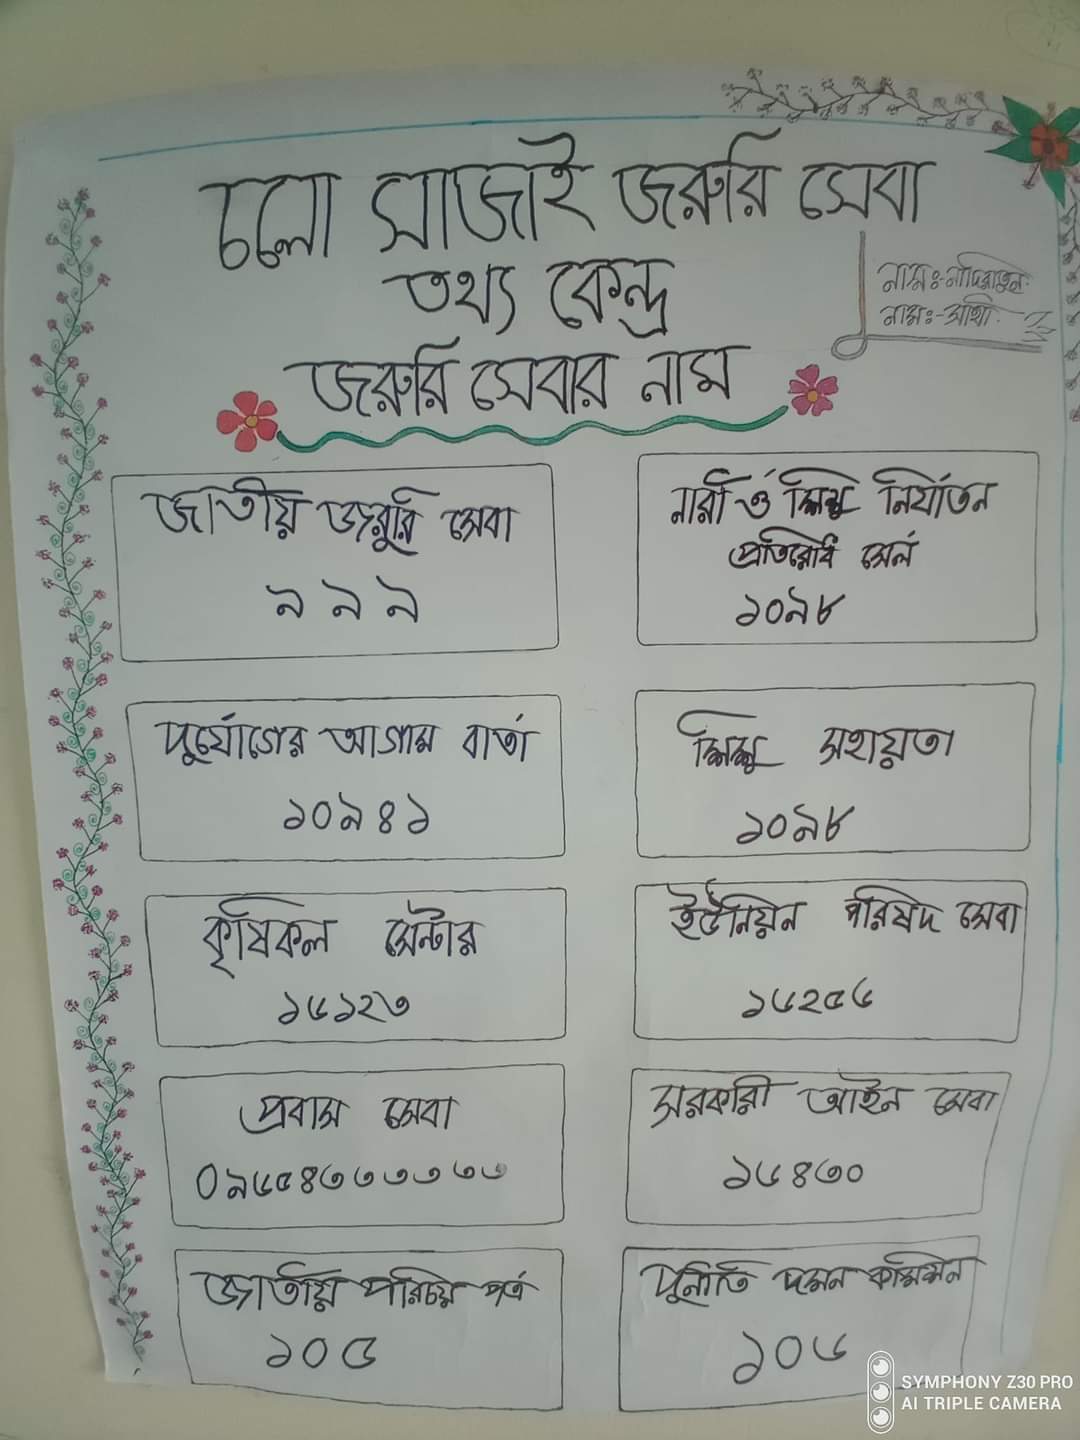 চলো সাজাই জরুরি সেবা
তথ্য কেন্দ্র
নামঃ-
নামঃ-সাথী
জরুরি সেবার নাম
জাতীয় জরুরি সেবা
৯৯৯
নারী ও শিশু নির্যাতন
প্রতিরোধ সেল
১০৯৮
দুর্যোগের আগাম বার্তা
১০৯৪১
শিশু সহায়তা
১০৯৮
কৃষিকল সেন্টার
১৬১২৩
ইউনিয়ন পরিষদ সেবা
১৬২৫৬
প্রবাস সেবা
০৯৬৫৪৩৩৩৩৩৩
সরকারী আইন সেবা
১৬৪৩০
জাতীয় পরিচয় পত্র
১০৫
দুর্নীতি দমন কমিশন
১০৬
SYMPHONY Z30 PRO
AI TRIPLE CAMERA